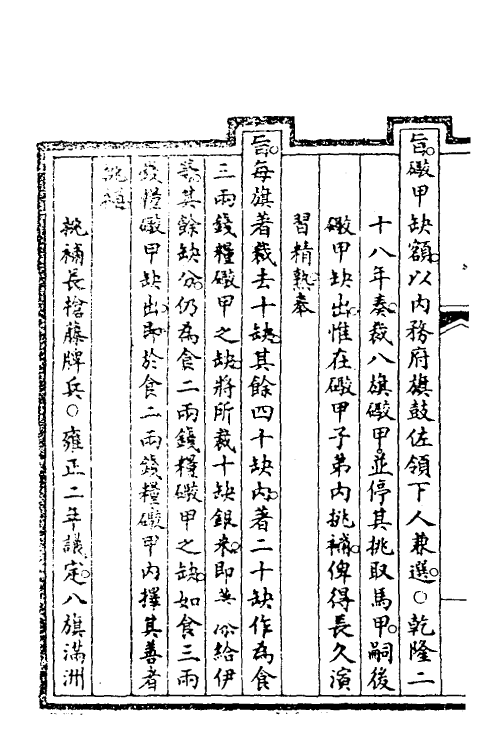 旨礮甲缺額以內務府旗鼓佐領下人兼選○乾隆二
十八年奏裁八旗礮甲並停其挑取馬甲嗣後
礮甲缺出惟在礮甲子弟內挑補俾得長久演
習精熟奉
旨每旗著裁去十缺其餘四十缺內著二十缺作為食
三兩錢糧礮甲之缺將所裁十缺銀米即 分給伊
等其餘缺分仍為食二兩錢糧礮甲之缺如食三兩
錢糧礮甲缺出即於食二兩錢糧礮甲內擇其善者
挑補
挑補長槍藤牌兵○雍正二年議定八旗滿洲